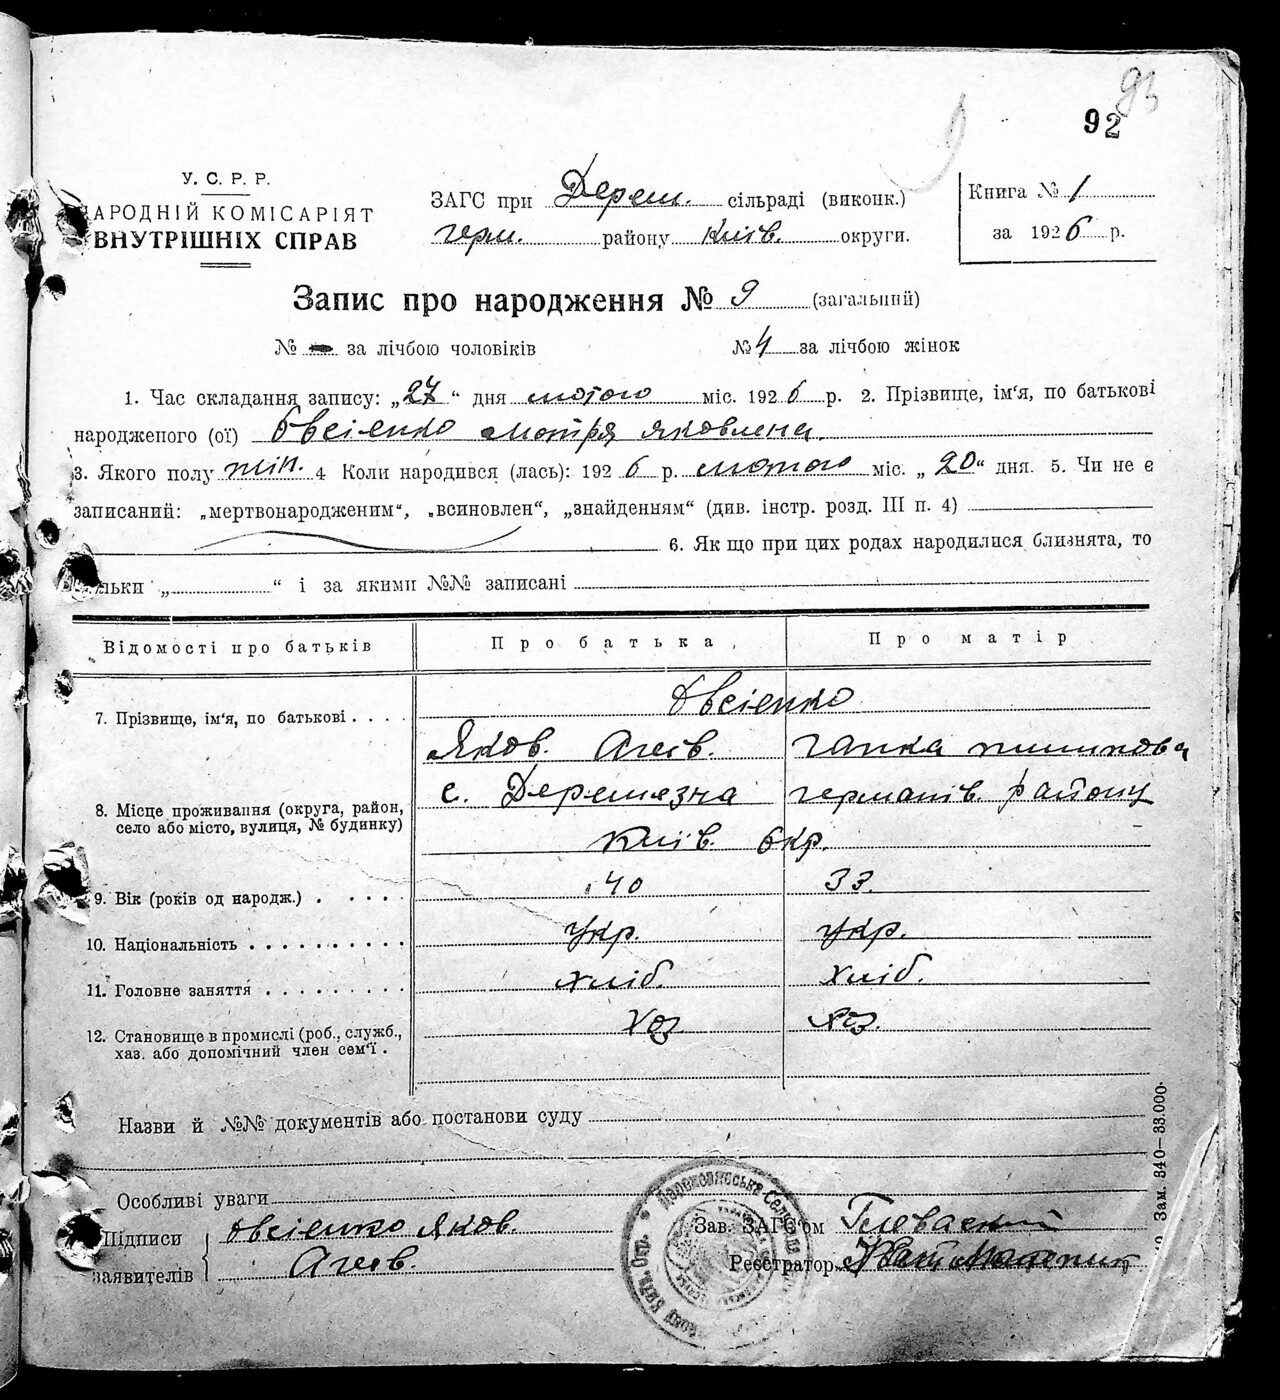 93
92
У. С. Р. Р.
АРОДНІЙ КОМІСАРІЯТ
ВНУТРІШНІХ СПРАВ
ЗАГС при Дереш. сільраді (виконк.)
герм. району Київ. округи.
Книга № 1
за 1926 р.
Запис про народження № 9 (загальний)
№ — за лічбою чоловіків № 4 за лічбою жінок
1. Час складання запису: „27“ дня лютого міс. 1926 р. 2. Прізвище, ім‘я, по батькові
народженого (ої) Овсієнко Мотря Яковлена.
3. Якого полу жін. 4 Коли народився (лась): 1926 р. лютого міс. „20“ дня. 5. Чи не є
записаний: „мертвонародженим“, „всиновлен“, „знайденням“ (див. інстр. розд. III п. 4)
6. Як що при цих родах народилися близнята, то
льки „ “ і за якими №№ записані
Відомості про батьків Про батька Про матір
Овсієнко
7. Прізвище, ім‘я, по батькові . . . .
Яков. Агеїв. Ганка
с. Деремезна германів. району
8. Місце проживання (округа, район,
село або місто, вулиця, № будинку)
Київ. Окр.
9. Вік (років од народж.) . . . . . 40 33.
10. Національність . . . . . . . . . . укр. укр.
11. Головне заняття . . . . . . . . . хліб. хліб.
12. Становище в промислі (роб., служб.,
хаз. або допомічний член сем‘ї . хоз хоз.
Назви й №№ документів або постанови суду
Особливі уваги
Підписи Овсієнко Яков.
заявителів Агеїв.
Зав. ЗАГС‘ом
Реєстратор
Зам. 840—33.000.